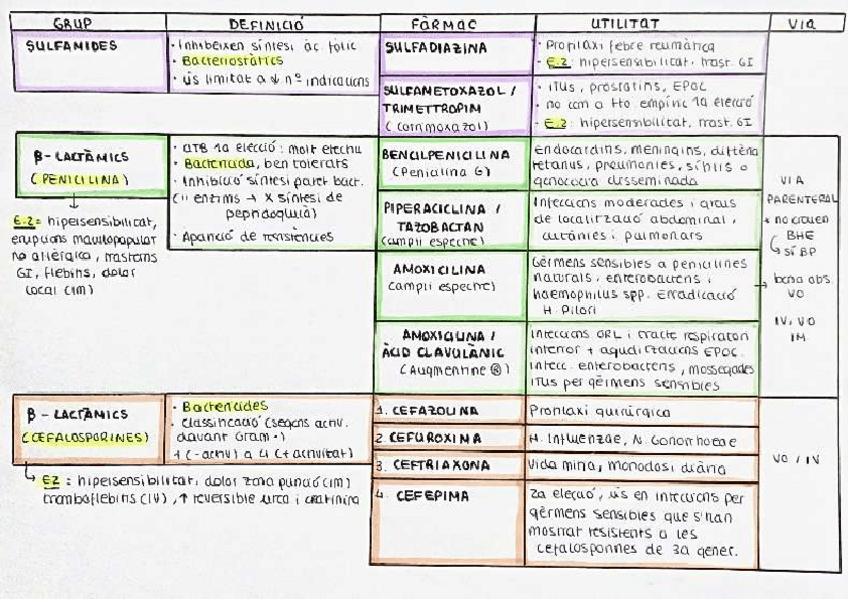 GRUP DEFINICIÓ FÀRMAC UTILITAT VIA
SULFAMIDES
· Inhibeixen síntesi àc. fòlic
· Bacteriostàtics
· ús limitat a ↓ nº indicacions
SULFADIAZINA
· Profilaxi febre reumàtica
· E.2: hipersensibilitat, trast. GI
SULFAMETOXAZOL /
TRIMETTROPIM
(cotrimoxazol)
· ITUs, prostatitis, EPOC
· no com a tto empíric 1a elecció
· E.2: hipersensibilitat, trast. GI
β-LACTÀMICS
(PENICILINA)
E.2 = hipersensibilitat,
erupcions maculopapular
no al·lèrgica, trastorns
GI, flebitis, dolor
local (IM)
· ATB 1a elecció: molt efectiu
· Bactericida, ben tolerats
· Inhibició síntesi paret bact.
(ii enzims → X síntesi de
peptidoglicà)
· Aparició de resistències
BENCILPENICILINA
(Penicilina G)
Endocarditis, meningitis, diftèria
tètanus, pneumonies, sífilis o
gonocòcia disseminada
PIPERACICLINA /
TAZOBACTAN
(ampli espectre)
Infeccions moderades i greus
de localització abdominal,
cutànies i pulmonars
AMOXICILINA
(ampli espectre)
Gèrmens sensibles a penicilines
naturals, enterobacteris i
haemophilus spp. Erradicació
H. Pilori
AMOXICILINA /
ÀCID CLAVULÀNIC
(Augmentine ®)
Infeccions ORL i tracte respiratori
inferior + aguditzacions EPOC.
Infecc. enterobacteris, mossegades
ITUs per gèrmens sensibles
VIA
PARENTERAL
* no creuen
BHE
↳ SÍ BP
→ bona abs.
VO
IV, VO
IM
β-LACTÀMICS
(CEFALOSPORINES)
↳ E2: hipersensibilitat, dolor zona punció (IM)
tromboflebitis (IV), ↑ reversible urea i creatinina
· Bactericides
· Classificació (segons activ.
davant Gram -)
1 (- activ) a 4 (+ activitat)
1. CEFAZOLINA
Profilaxi quirúrgica
2. CEFUROXIMA
H. Influenzae, N. Gonorrhoeae
3. CEFTRIAXONA
Vida mitja, monodosi diària
4. CEFEPIMA
2a elecció, ús en infeccions per
gèrmens sensibles que s'han
mostrat resistents a les
cefalosporines de 3a gener.
VO / IV